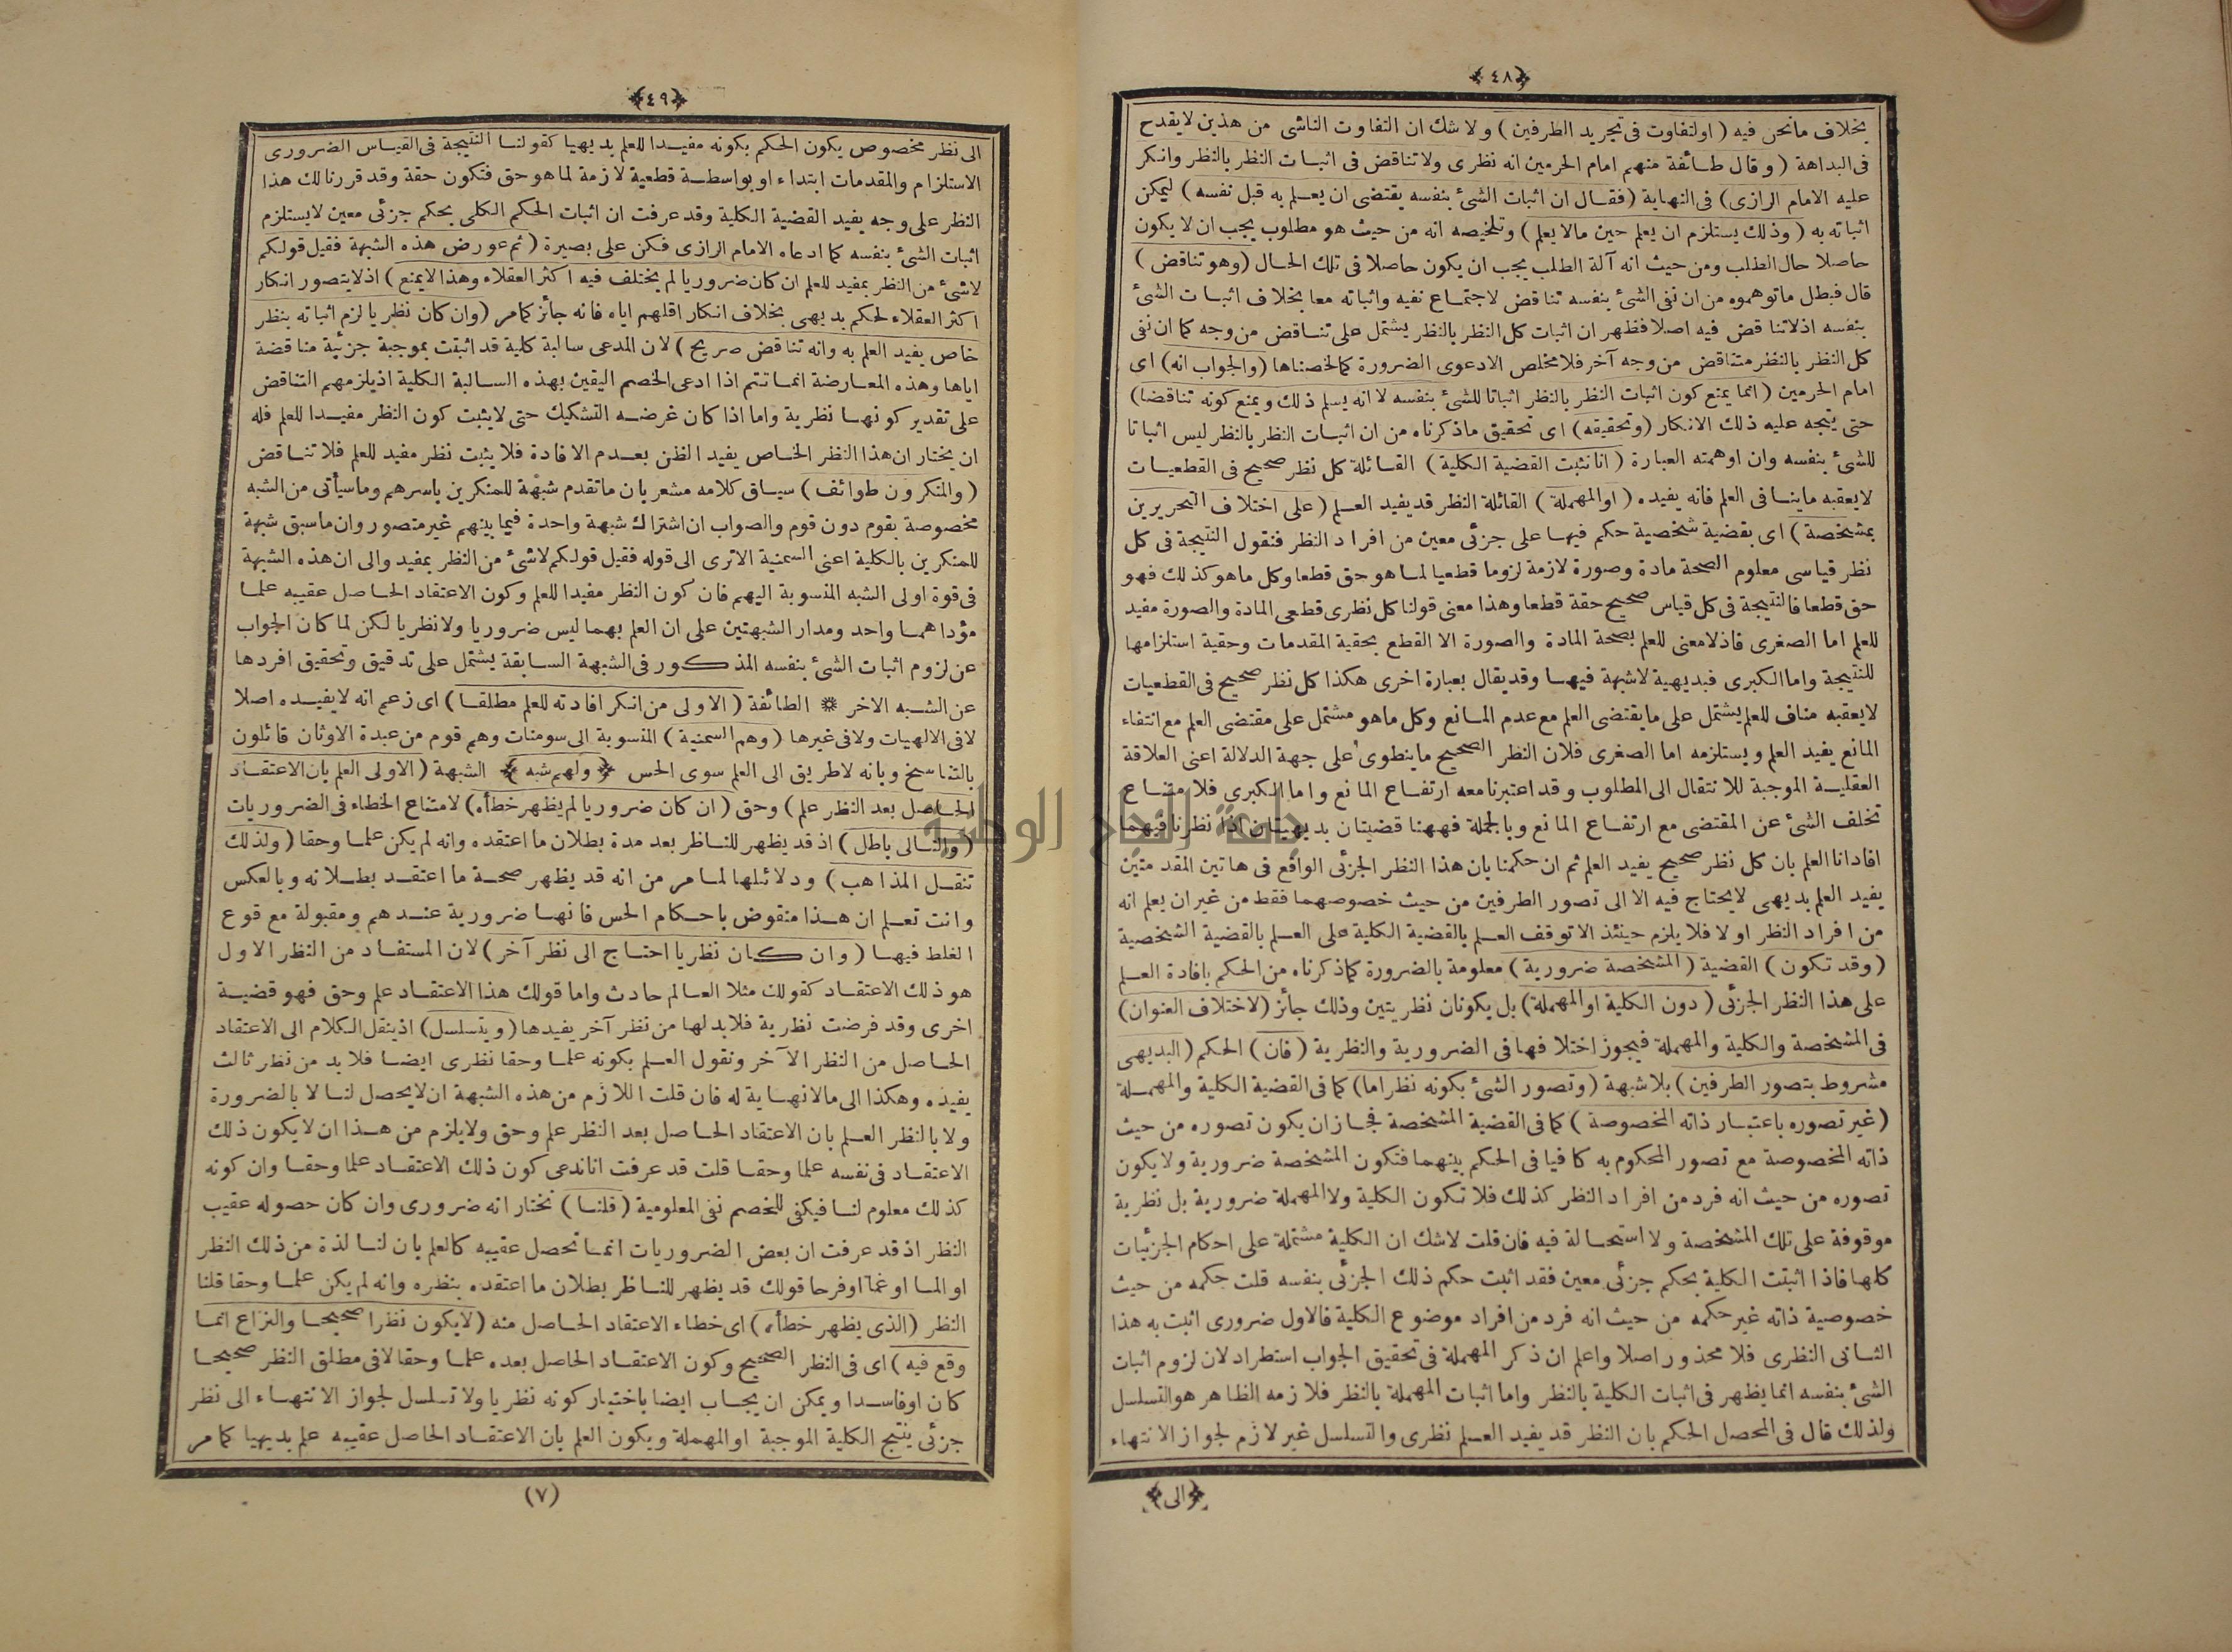 ﴿٤٨﴾
بخلاف مانحن فيه ( اولتفاوت فى تجريد الطرفين ) ولا شك ان التفاوت الناشى من هذين لايقدح
فى البداهة ( وقال طائفة منهم امام الحرمين انه نظرى ولا تناقض فى اثبات النظر بالنظر وانكر
عليه الامام الرازى ) فى النهاية ( فقال ان اثبات الشئ بنفسه يقتضى ان يعلم به قبل نفسه ) ليمكن
اثباته به ( وذلك يستلزم ان يعلم حين مالا يعلم ) وتلخيصه انه من حيث هو مطلوب يجب ان لا يكون
حاصلا حال الطلب ومن حيث انه آلة الطلب يجب ان يكون حاصلا فى تلك الحال ( وهو تناقض )
قال فبطل ماتوهموه من ان نفى الشئ بنفسه تناقض لاجتماع نفيه واثباته معا بخلاف اثبات الشئ
بنفسه اذلاتناقض فيه اصلا فظهر ان اثبات كل النظر بالنظر يشتمل على تناقض من وجه كما ان نفى
كل النظر بالنظر متناقض من وجه آخر فلا مخلص الادعوى الضرورة كمالخصناها ( والجواب انه ) اى
امام الحرمين ( انما يمنع كون اثبات النظر بالنظر اثباتا للشئ بنفسه لا انه يسلم ذلك ويمنع كونه تناقضا )
حتى يتجه عليه ذلك الانكار ( وتحقيقه ) اى تحقيق ماذكرناه من ان اثبات النظر بالنظر ليس اثباتا
للشئ بنفسه وان اوهمته العبارة ( انا نثبت القضية الكلية ) القائلة كل نظر صحيح فى القطعيات
لايعقبه ماينافى العلم فانه يفيده ( او المهملة ) القائلة النظر قد يفيد العلم ( على اختلاف التحريرين
بمشخصة ) اى بقضية شخصية حكم فيها على جزئى معين من افراد النظر فنقول النتيجة فى كل
نظر قياسى معلوم الصحة مادة وصورة لازمة لزوما قطعيا لما هو حق قطعا وكل ماهو كذلك فهو
حق قطعا فالنتيجة فى كل قياس صحيح حقة قطعا وهذا معنى قولنا كل نظرى قطعى المادة والصورة مفيد
للعلم اما الصغرى فاذلامعنى للعلم بصحة المادة والصورة الا القطع بحقية المقدمات وحقية استلزامها
للنتيجة واما الكبرى فبديهية لاشبهة فيها وقد يقال بعبارة اخرى هكذا كل نظر صحيح فى القطعيات
لايعقبه مناف للعلم يشتمل على مايقتضى العلم مع عدم المانع وكل ماهو مشتمل على مقتضى العلم مع انتفاء
المانع يفيد العلم ويستلزمه اما الصغرى فلان النظر الصحيح ماينطوى على جهة الدلالة اعنى العلاقة
العقلية الموجبة للانتقال الى المطلوب وقد اعتبرنا معه ارتفاع المانع واما الكبرى فلامتناع
تخلف الشئ عن المقتضى مع ارتفاع المانع وبالجملة فههنا قضيتان بديهيتان اذا نظرنا فيهما
افادانا العلم بان كل نظر صحيح يفيد العلم ثم ان حكمنا بان هذا النظر الجزئى الواقع فى هاتين المقدمتين
يفيد العلم بديهى لايحتاج فيه الا الى تصور الطرفين من حيث خصوصهما فقط من غير ان يعلم انه
من افراد النظر اولا فلا يلزم حينئذ الا توقف العلم بالقضية الكلية على العلم بالقضية الشخصية
( وقد تكون ) القضية ( المشخصة ضرورية ) معلومة بالضرورة كماذكرناه من الحكم بافادة العلم
على هذا النظر الجزئى ( دون الكلية او المهملة ) بل يكونان نظريتين وذلك جائز ( لاختلاف العنوان )
فى المشخصة والكلية والمهملة فيجوز اختلافها فى الضرورية والنظرية ( فان ) الحكم ( البديهى
مشروط بتصور الطرفين ) بلاشبهة ( وتصور الشئ بكونه نظرا ما ) كما فى القضية الكلية والمهملة
( غير تصوره باعتبار ذاته المخصوصة ) كما فى القضية المشخصة فجاز ان يكون تصوره من حيث
ذاته المخصوصة مع تصور المحكوم به كافيا فى الحكم بينهما فتكون المشخصة ضرورية ولا يكون
تصوره من حيث انه فرد من افراد النظر كذلك فلا تكون الكلية ولا المهملة ضرورية بل نظرية
موقوفة على تلك المشخصة ولا استحالة فيه فان قلت لاشك ان الكلية مشتملة على احكام الجزئيات
كلها فاذا اثبتت الكلية بحكم جزئى معين فقد اثبت حكم ذلك الجزئى بنفسه قلت حكمه من حيث
خصوصية ذاته غير حكمه من حيث انه فرد من افراد موضوع الكلية فالاول ضرورى اثبت به هذا
الثانى النظرى فلا محذور اصلا واعلم ان ذكر المهملة فى تحقيق الجواب استطراد لان لزوم اثبات
الشئ بنفسه انما يظهر فى اثبات الكلية بالنظر واما اثبات المهملة بالنظر فلازمه الظاهر هو التسلسل
ولذلك قال فى المحصل الحكم بان النظر قد يفيد العلم نظرى والتسلسل غير لازم لجواز الانتهاء
﴿الى﴾
﴿٤٩﴾
الى نظر مخصوص يكون الحكم بكونه مفيدا للعلم بديهيا كقولنا النتيجة فى القياس الضرورى
الاستلزام والمقدمات ابتداء او بواسطة قطعية لازمة لما هو حق فتكون حقة وقد قررنا لك هذا
النظر على وجه يفيد القضية الكلية وقد عرفت ان اثبات الحكم الكلى بحكم جزئى معين لايستلزم
اثبات الشئ بنفسه كما ادعاه الامام الرازى فكن على بصيرة ( ثم عورض هذه الشبهة فقيل قولكم
لاشئ من النظر بمفيد للعلم ان كان ضروريا لم يختلف فيه اكثر العقلاء وهذا لايمنع ) اذلايتصور انكار
اكثر العقلاء لحكم بديهى بخلاف انكار اقلهم اياه فانه جائز كمامر ( وان كان نظريا لزم اثباته بنظر
خاص يفيد العلم به وانه تناقض صريح ) لان المدعى سالبة كلية قد اثبتت بموجبة جزئية مناقضة
اياها وهذه المعارضة انما تتم اذا ادعى الخصم اليقين بهذه السالبة الكلية اذيلزمهم التناقض
على تقدير كونها نظرية واما اذا كان غرضه التشكيك حتى لايثبت كون النظر مفيدا للعلم فله
ان يختار ان هذا النظر الخاص يفيد الظن بعدم الافادة فلا يثبت نظر مفيد للعلم فلا تناقض
( والمنكرون طوائف ) سياق كلامه مشعر بان ماتقدم شبهة للمنكرين باسرهم وماسيأتى من الشبه
مخصوصة بقوم دون قوم والصواب ان اشتراك شبهة واحدة فيما بينهم غير متصور وان ماسبق شبهة
للمنكرين بالكلية اعنى السمنية الاترى الى قوله فقيل قولكم لاشئ من النظر بمفيد والى ان هذه الشبهة
فى قوة اولى الشبه المنسوبة اليهم فان كون النظر مفيدا للعلم وكون الاعتقاد الحاصل عقيبه علما
مؤداهما واحد ومدار الشبهتين على ان العلم بهما ليس ضروريا ولا نظريا لكن لما كان الجواب
عن لزوم اثبات الشئ بنفسه المذكور فى الشبهة السابقة يشتمل على تدقيق وتحقيق افردها
عن الشبه الاخر ۞ الطائفة ( الاولى من انكر افادته للعلم مطلقا ) اى زعم انه لايفيده اصلا
لافى الالهيات ولافى غيرها ( وهم السمنية ) المنسوبة الى سومنات وهم قوم من عبدة الاوثان قائلون
بالتناسخ وبانه لاطريق الى العلم سوى الحس ﴿ ولهم شبه ﴾ الشبهة ( الاولى العلم بان الاعتقاد
الحاصل بعد النظر علم ) وحق ( ان كان ضروريا لم يظهر خطأه ) لامتناع الخطاء فى الضروريات
( والتالى باطل ) اذ قد يظهر للناظر بعد مدة بطلان ما اعتقده وانه لم يكن علما وحقا ( ولذلك
تنقل المذاهب ) ودلائلها لما مر من انه قد يظهر صحة ما اعتقد بطلانه وبالعكس
وانت تعلم ان هذا منقوض باحكام الحس فانها ضرورية عندهم ومقبولة مع قوع
الغلط فيها ( وان كان نظريا احتاج الى نظر آخر ) لان المستفاد من النظر الاول
هو ذلك الاعتقاد كقولك مثلا العالم حادث واما قولك هذا الاعتقاد علم وحق فهو قضية
اخرى وقد فرضت نظرية فلابد لها من نظر آخر يفيدها ( ويتسلسل ) اذينقل الكلام الى الاعتقاد
الحاصل من النظر الآخر ونقول العلم بكونه علما وحقا نظرى ايضا فلا بد من نظر ثالث
يفيده وهكذا الى مالانهاية له فان قلت اللازم من هذه الشبهة ان لايحصل لنا لا بالضرورة
ولا بالنظر العلم بان الاعتقاد الحاصل بعد النظر علم وحق ولايلزم من هذا ان لا يكون ذلك
الاعتقاد فى نفسه علما وحقا قلت قد عرفت انا ندعى كون ذلك الاعتقاد علما وحقا وان كونه
كذلك معلوم لنا فيكفى للخصم نفى المعلومية ( قلنا ) نختار انه ضرورى وان كان حصوله عقيب
النظر اذ قد عرفت ان بعض الضروريات انما تحصل عقيبه كالعلم بان لنا لذة من ذلك النظر
او الما او غما او فرحا قولك قد يظهر للناظر بطلان ما اعتقده بنظره وانه لم يكن علما وحقا قلنا
النظر ( الذى يظهر خطأه ) اى خطاء الاعتقاد الحاصل منه ( لايكون نظرا صحيحا والنزاع انما
وقع فيه ) اى فى النظر الصحيح وكون الاعتقاد الحاصل بعده علما وحقا لافى مطلق النظر صحيحا
كان اوفاسدا ويمكن ان يجاب ايضا باختيار كونه نظريا ولا تسلسل لجواز الانتهاء الى نظر
جزئى ينتج الكلية الموجبة او المهملة ويكون العلم بان الاعتقاد الحاصل عقيبه علم بديهيا كما مر
(٧)
جامعة النجاح الوطنية